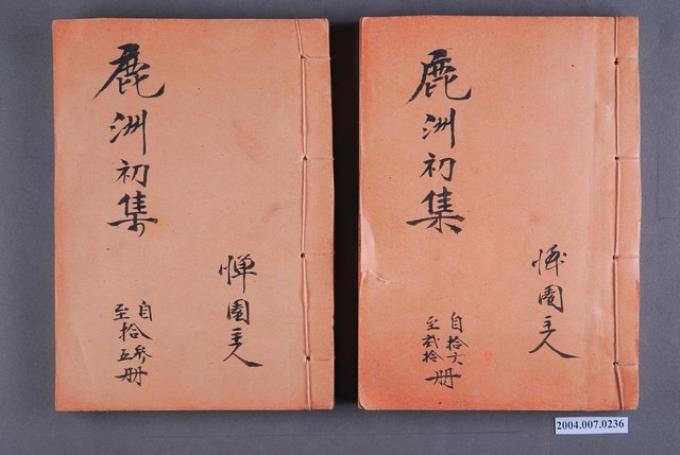 鹿洲初集
園主人
自拾參
至拾五
冊
鹿洲初集
園主人
自拾六
至貳拾
冊
2004.007.0236